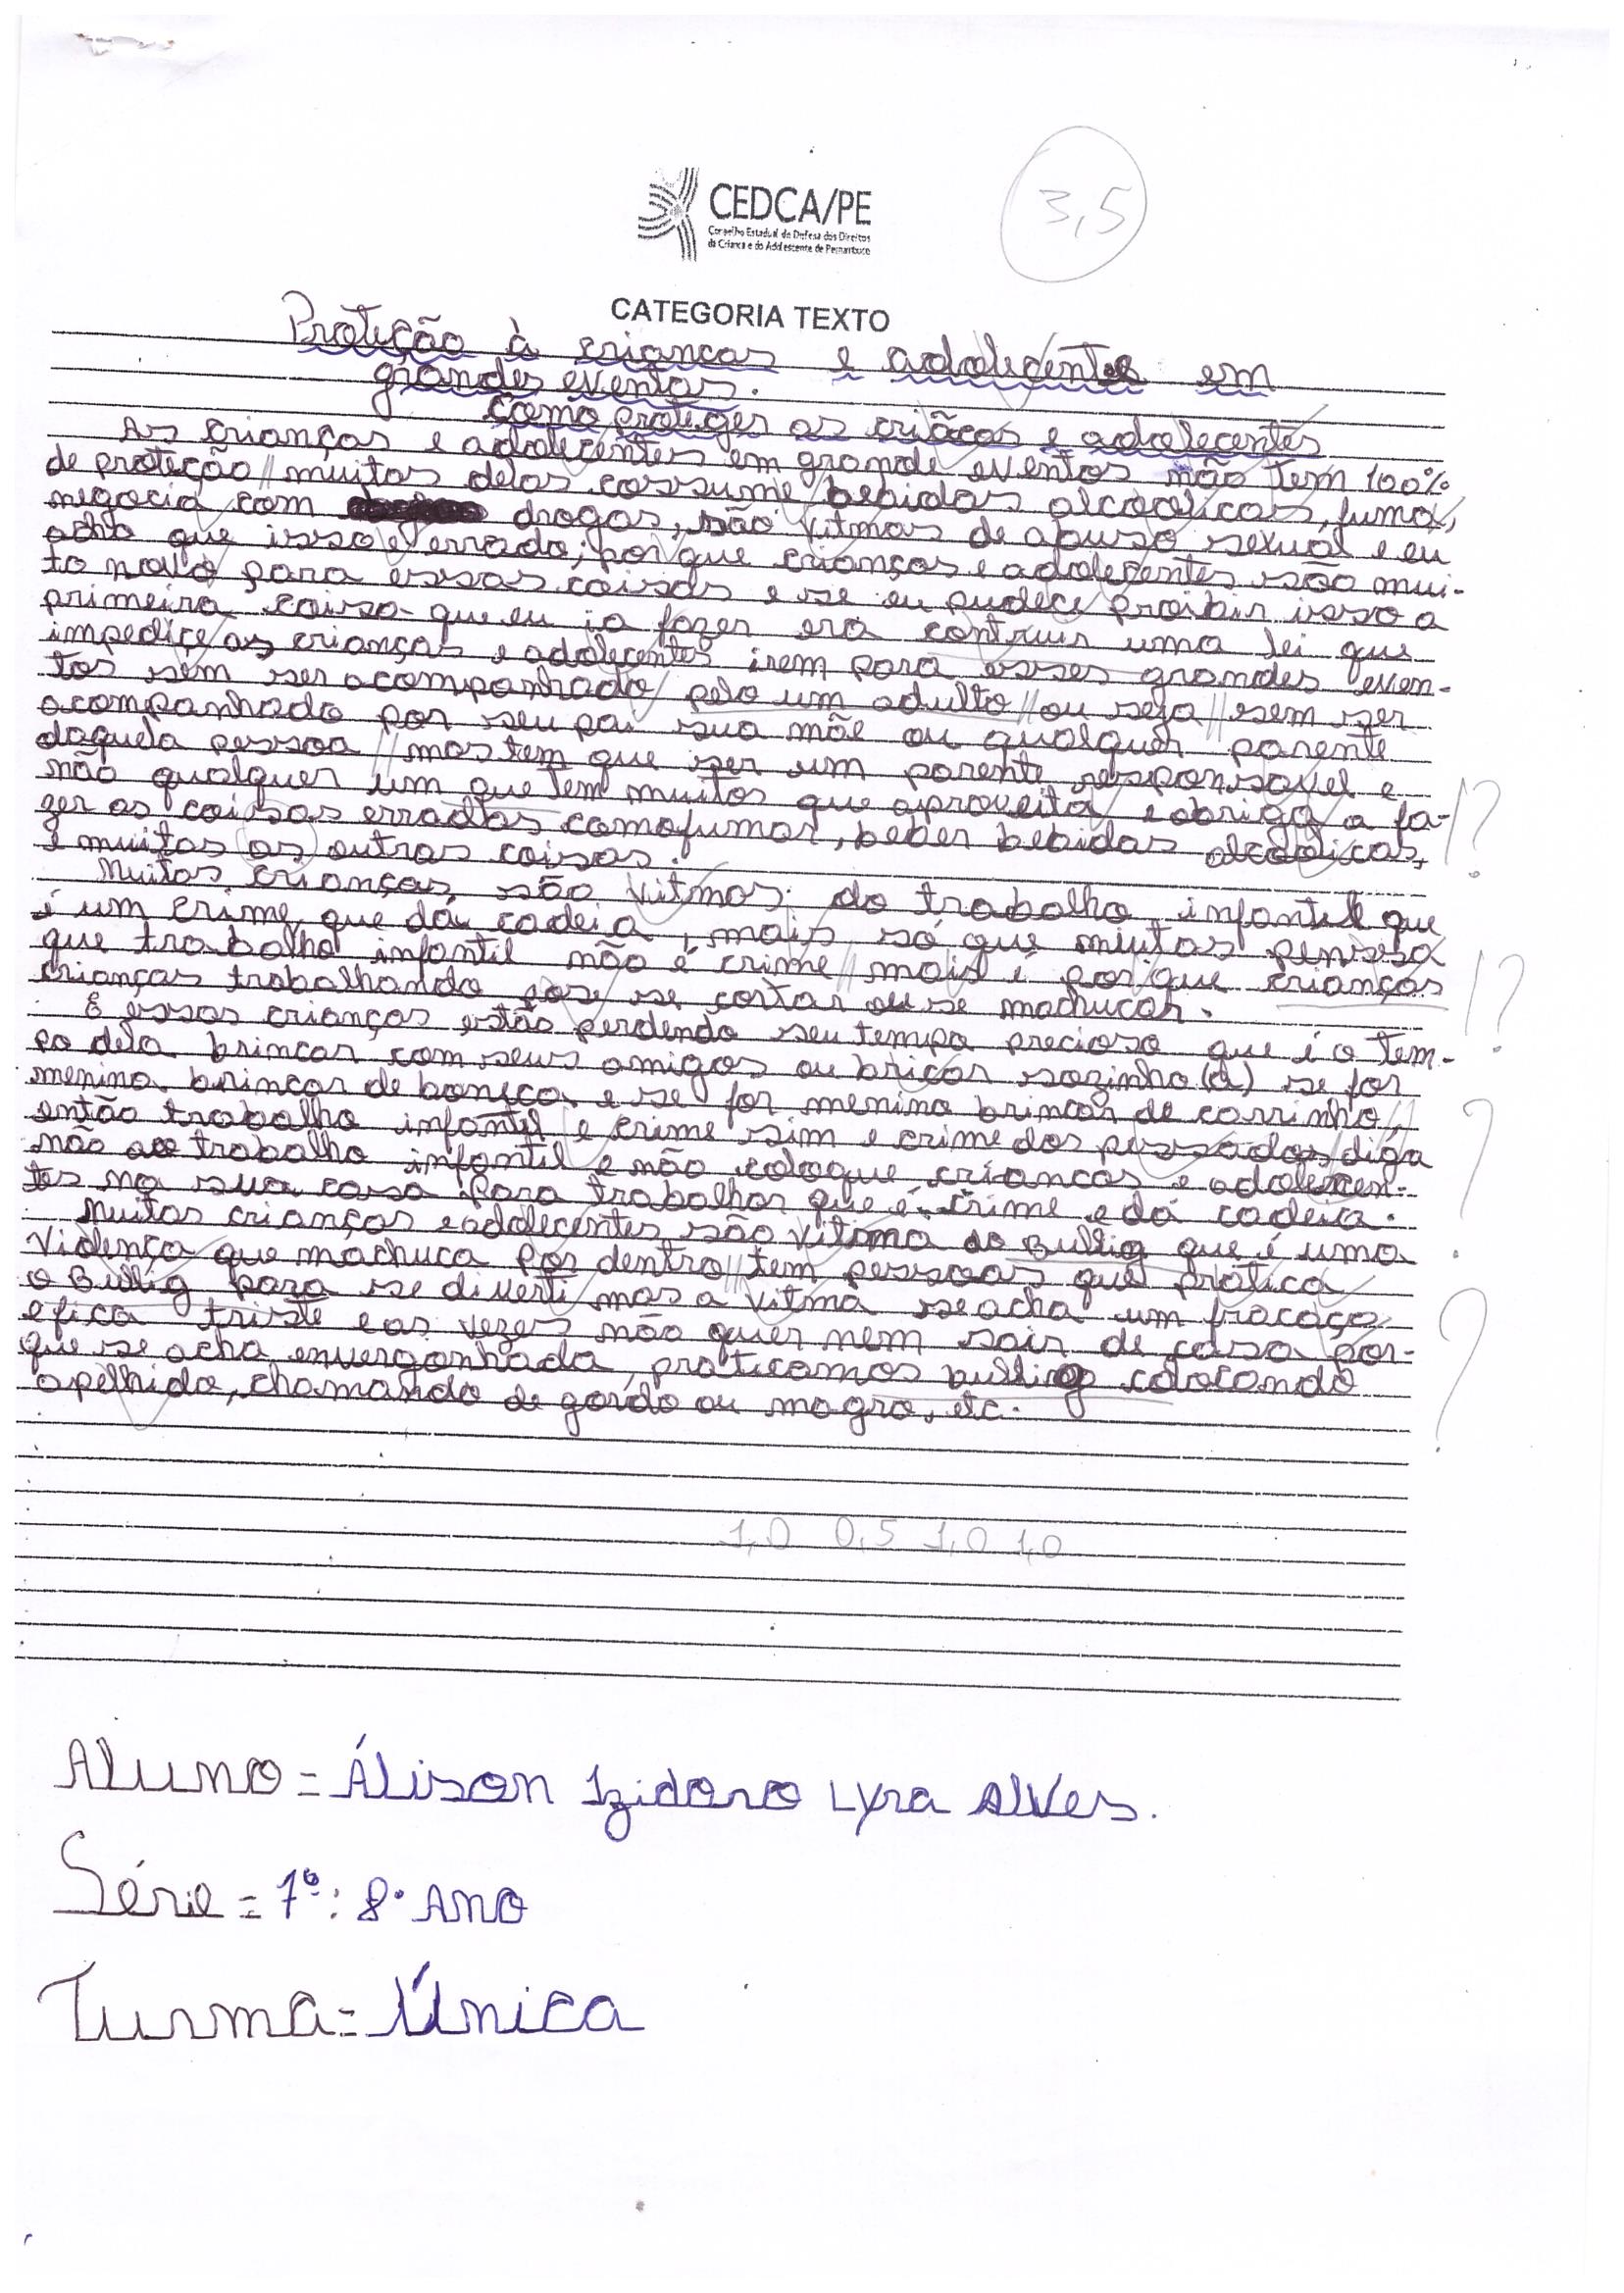 CEDCA/PE
Conselho Estadual de Defesa dos Direitos
da Criança e do Adolescente de Pernambuco
3,5
CATEGORIA TEXTO
Proteção à criancas e adolecentes em
grandes eventos.
Como proteger as criãcas e adolecentes
As crianças e adolecentes em grande eventos não tem 100%
de proteção // muitas delas cossume bebidas alcoolicas, fuma,
negocia com drogas, são vitmas de abuso sexual e eu
acho que isso é errado, por que crianças e adolecentes são mui-
to novo para essas coisas e se eu pudece proibir isso a
primeira coisa que eu ia fazer era contruir uma lei que
impediçe as crianças e adolecentes irem para esses grandes even-
tos sem ser acompanhado pelo um adulto // ou seja // sem ser
acompanhado por seu pai sua mãe ou qualquer parente
daquela pessoa // mas tem que ser um parente responsavel e
não qualquer um que tem muitos que aproveita e obriga a fa-
zer as coisas erradas como fumar, beber bebidas alcoolicas, !?
e muitas as outras coisas.
Muitas crianças são vitmas do trabalho infantil que
é um crime que dá cadeia, mais só que muitas pensa
que trabalho infantil não é crime // mais é por que crianças !?
crianças trabalhando pose se cortar ou se machucar.
E essas crianças estão perdendo seu tempo precioso que é o tem-
po dela brincar com seus amigos ou bricar sozinho(a) se for
menina brincar de boneca e se for menino brincar de carrinho,
então trabalho infantil e crime sim e crime dos pessados, diga
não ao trabalho infantil e não coloque criancas e adolencen- ?
tes na sua casa para trabalhar que é crime e dá cadeia.
Muitas crianças e adolecentes são vitima do Bullig que é uma
viólença que machuca por dentro // tem pessoas que prática
o Bullig para se diverti mas a vitma se acha um fracaço
e fica triste e as vezes não quer nem sair de casa por- ?
que se acha envergonhada, praticamos bullig colocando
apelhido, chamando de gordo ou magro, etc.
1,0 0,5 1,0 1,0
Aluno = Álison Izidoro Lyra Alves.
Série = 7º: 8º Ano
Turma = Única